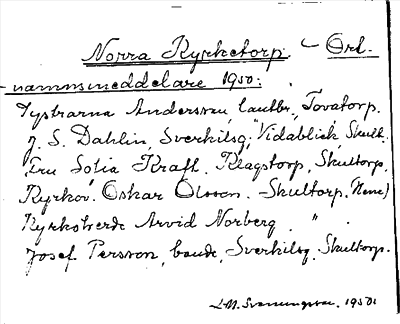 Norra Kyrketorp. - Ort-
namnsmeddelare 1950:
Systrarna Andersson, lantbr., Tovatorp.
J. S. Dahlin, Sverkilsg, "Vidablick", Skult.
Fru Sofia Kraft, Klagstorp, Skultorp.
Kyrkov. Oskar Olsson. - Skultorp. (Nene)
Kyrkoherde Arvid Norberg " .
Josef Persson, lbruk., Sverkilsg. Skultorp.
L.M. Svenungsson. 1950.